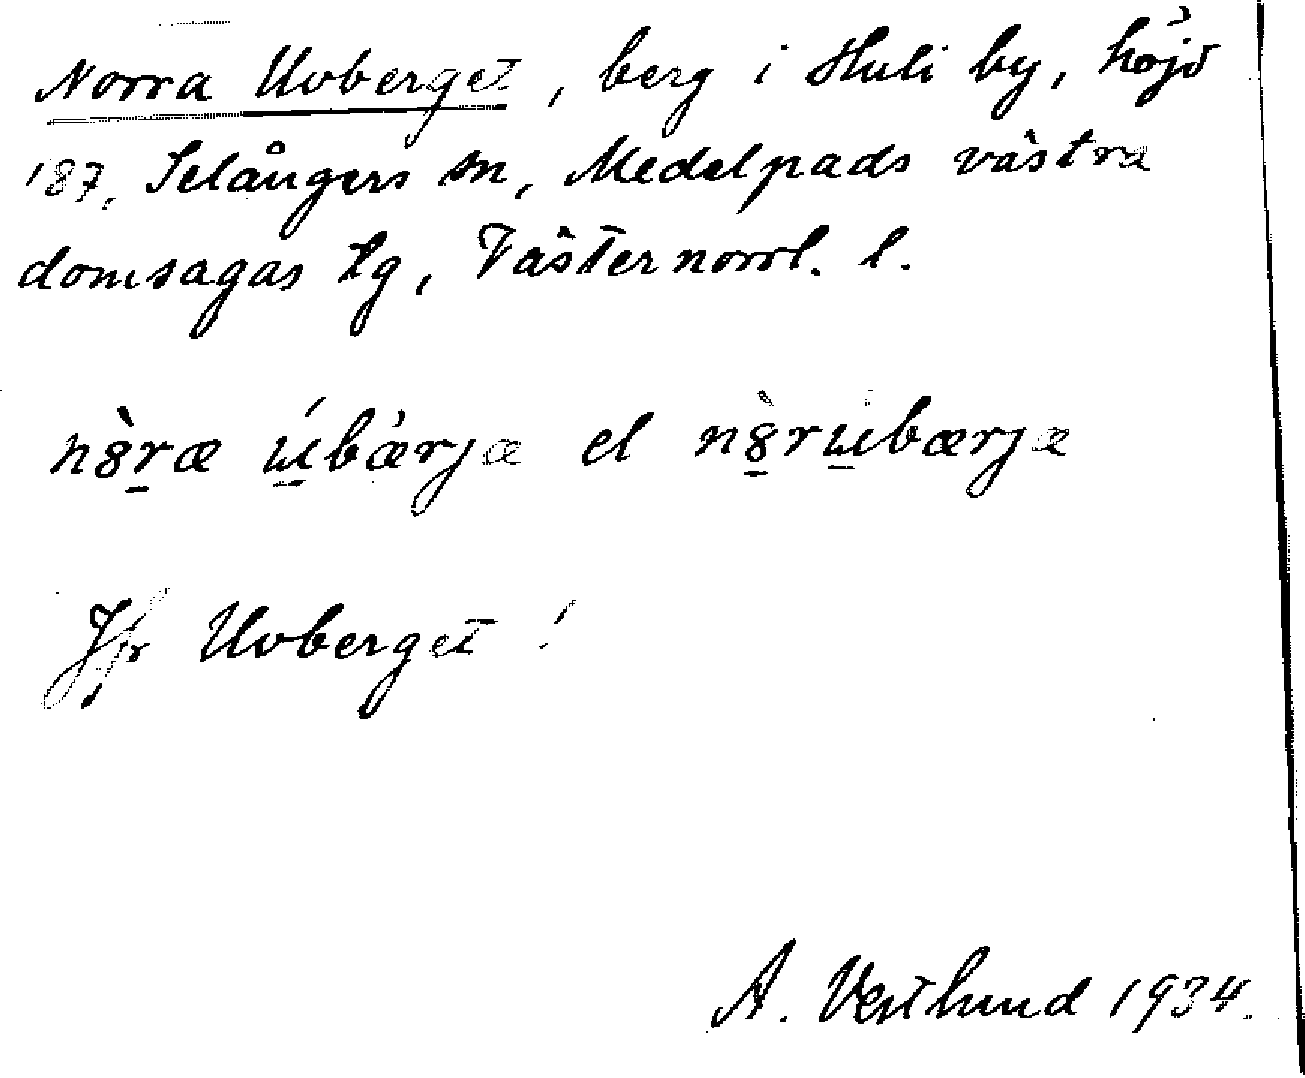 Norra Uvberget, berg i Huli by, höjd
187, Selångers sn, Medelpads västra
domsagas tg, Västernorrl. l.
n8̀r̲æ ú̲bàrjæ el n8̲̀ru̲bærjæ
Jfr Uvberget!
A. Vestlund 1934.